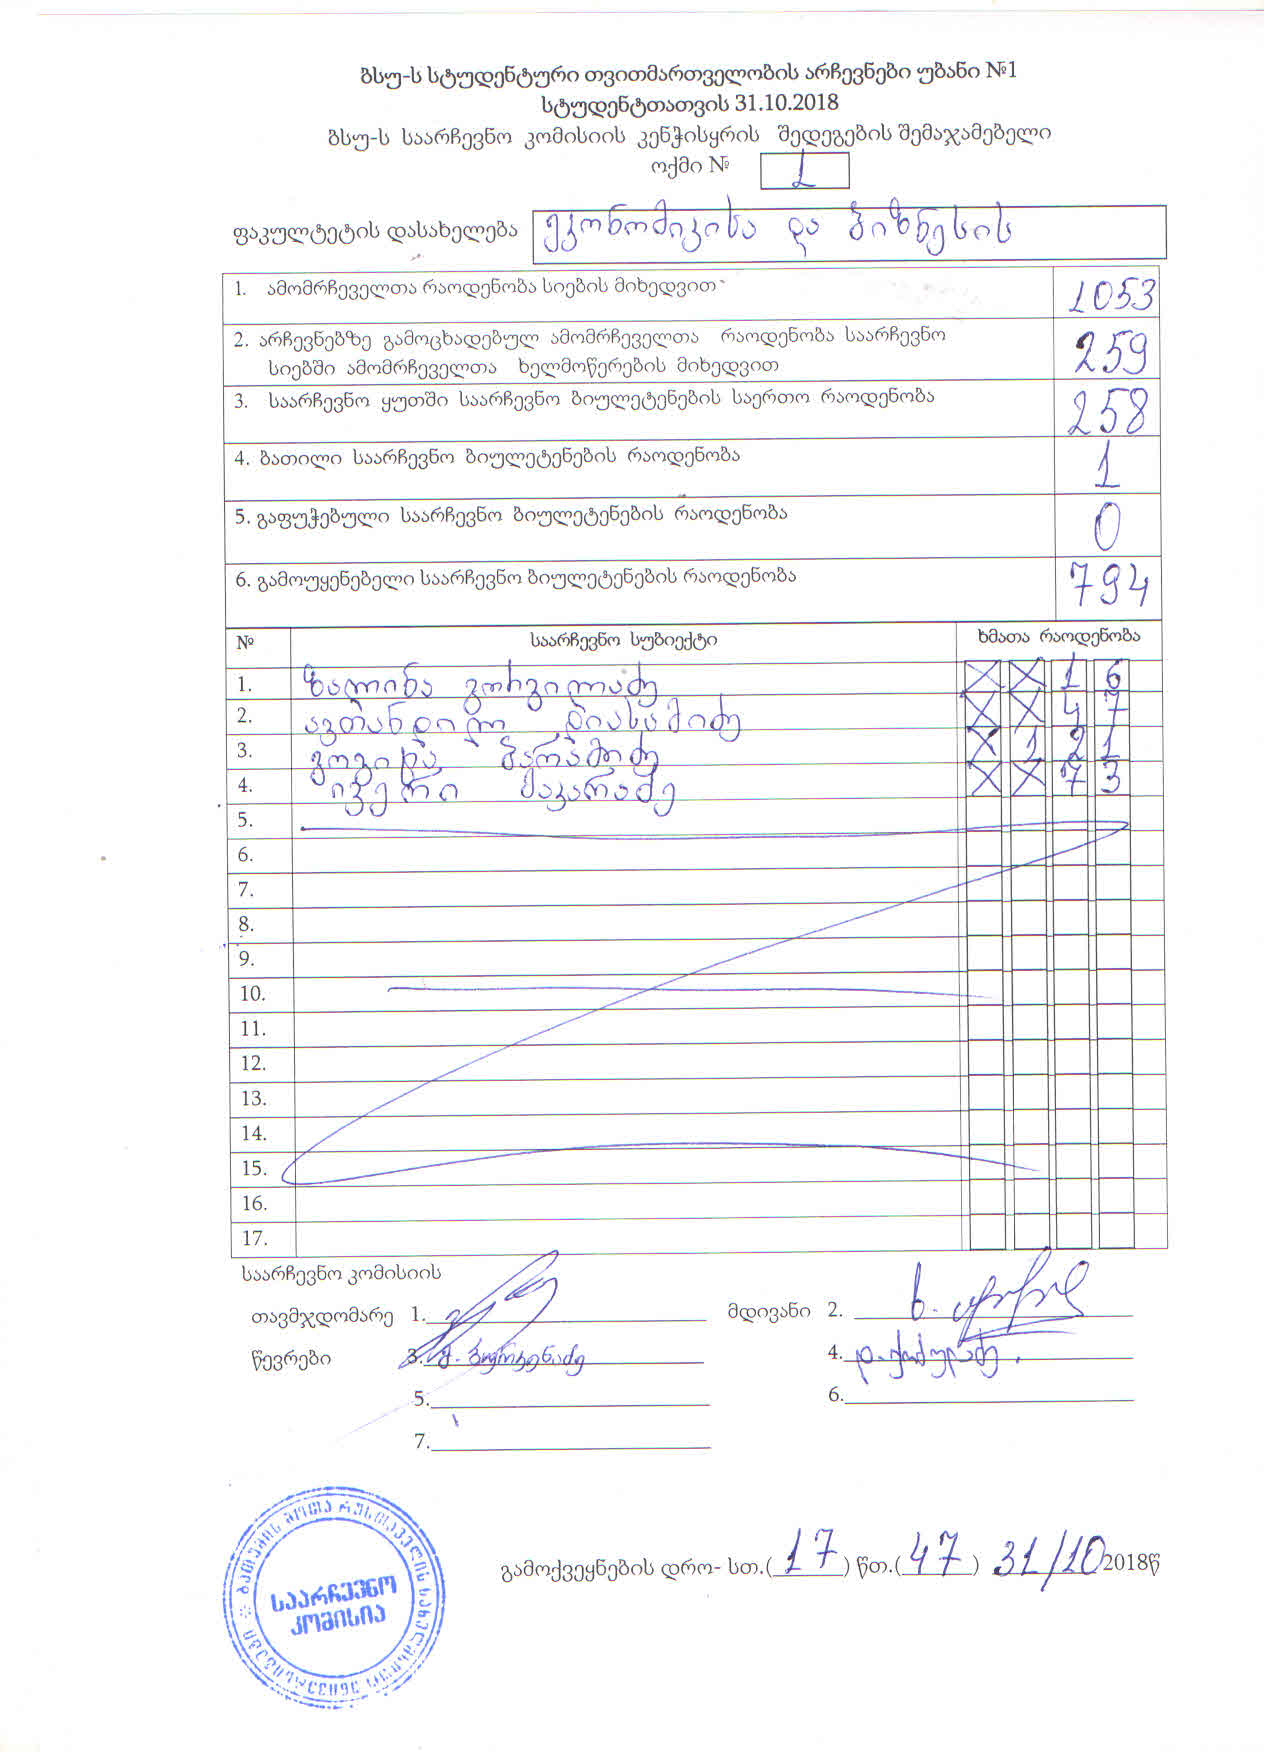 ბსუ-ს სტუდენტური თვითმართველობის არჩევნები უბანი №1
სტუდენტთათვის 31.10.2018
ბსუ-ს საარჩევნო კომისიის კენჭისყრის შედეგების შემაჯამებელი
ოქმი № 1
ფაკულტეტის დასახელება ეკონომიკისა და ბიზნესის
1. ამომრჩეველთა რაოდენობა სიების მიხედვით 1053
2. არჩევნებზე გამოცხადებულ ამომრჩეველთა რაოდენობა საარჩევნო
სიებში ამომრჩეველთა ხელმოწერების მიხედვით 259
3. საარჩევნო ყუთში საარჩევნო ბიულეტენების საერთო რაოდენობა 258
4. ბათილი საარჩევნო ბიულეტენების რაოდენობა 1
5. გაფუჭებული საარჩევნო ბიულეტენების რაოდენობა 0
6. გამოუყენებელი საარჩევნო ბიულეტენების რაოდენობა 794
№ საარჩევნო სუბიექტი ხმათა რაოდენობა
1. ზალინა გორგილაძე X X 1 6
2. ავთანდილ დიასამიძე X X 4 7
3. გოგიტა ბარამიძე X 1 2 1
4. ივერი მაკარაძე X X 7 3
5.
6.
7.
8.
9.
10.
11.
12.
13.
14.
15.
16.
17.
საარჩევნო კომისიის
თავმჯდომარე 1. მდივანი 2.
წევრები 3. 4.
5. 6.
7.
ბათუმის შოთა რუსთაველის სახელმწიფო უნივერსიტეტი
საარჩევნო
კომისია
გამოქვეყნების დრო- სთ.(17) წთ.(47) 31/10 2018წ